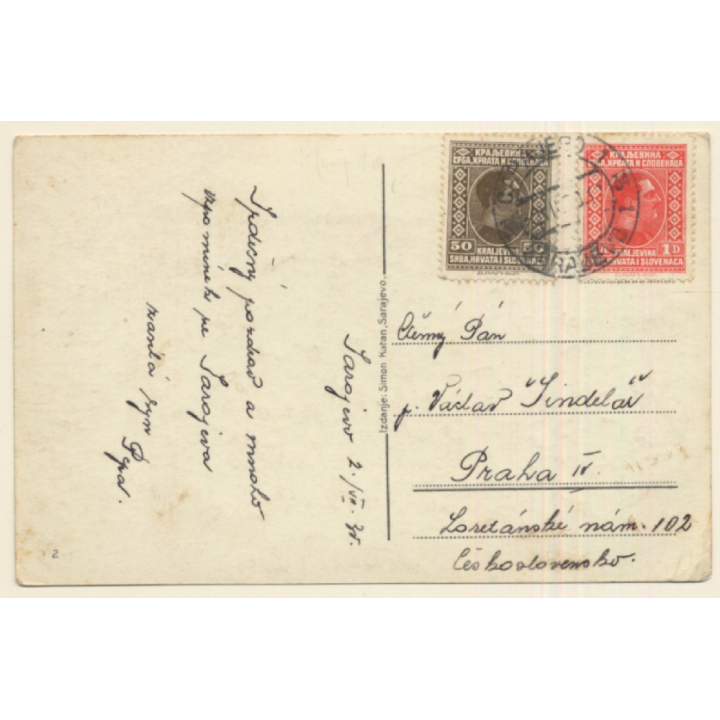 КРАЉЕВИНА
СРБА, ХРВАТА И СЛОВЕНАЦА
50 50
KRALJEVINA
SRBA, HRVATA I SLOVENACA
КРАЉЕВИНА
СРБА, ХРВАТА И СЛОВЕНАЦА
1D
KRALJEVINA
HRVATA I SLOVENACA
SARAJEVO 1
Srdečný pozdrav a mnoho
vzpomínek ze Sarajeva
Pepa.
Sarajevo 2./VII.
Izdanje: Simon Katan, Sarajevo.
Ctěný Pán
p. Václav "Šindelář"
Praha IV.
Loretánské nám. 102
Československo.
2